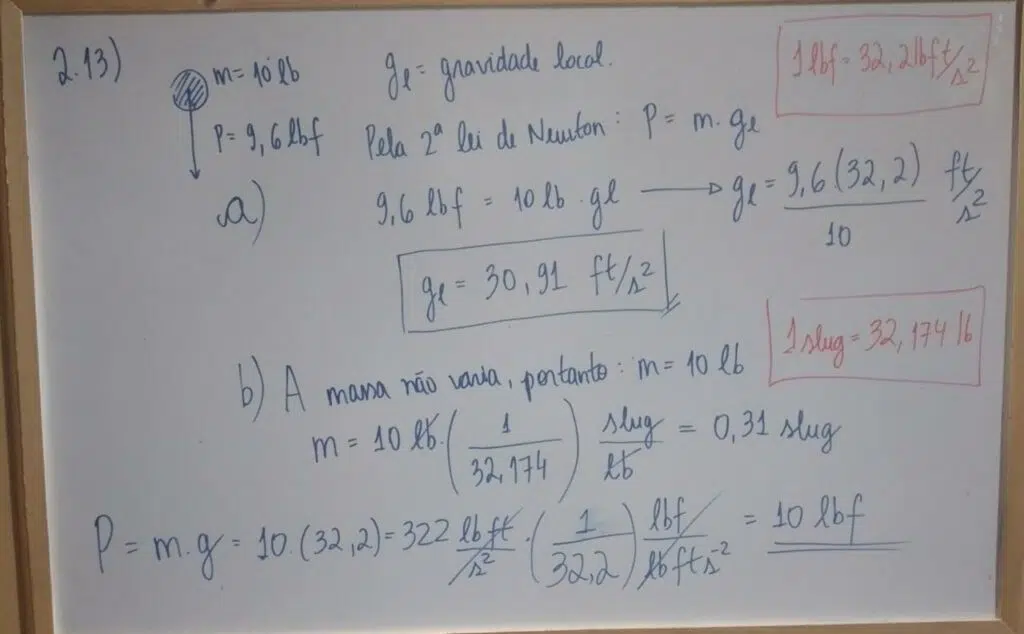 2.13)
m = 10 lb
P = 9,6 lbf
gl = gravidade local.
1 lbf = 32,2 lbft/s²
Pela 2ª lei de Newton: P = m. gl
a)
9,6 lbf = 10 lb . gl → gl = 9,6 (32,2) / 10 ft/s²
gl = 30,91 ft/s²
1 slug = 32,174 lb
b) A massa não varia, portanto: m = 10 lb
m = 10 lb. (1/32,174) slug/lb = 0,31 slug
P = m.g = 10.(32,2) = 322 lbft/s² . (1/32,2) lbf/lbfts⁻² = 10 lbf